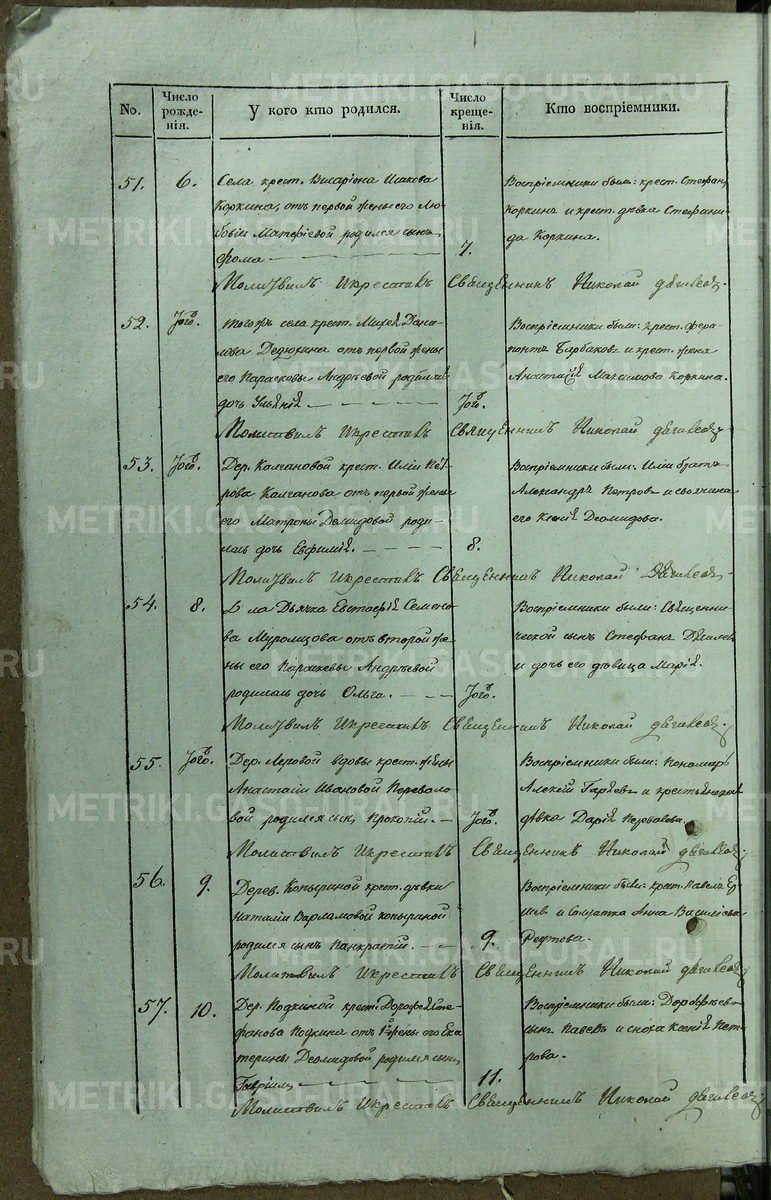 No.
Число рожде- нія.
У кого кто родился.
Число креще- нія.
Кто воспріемники.
51. 6. Села крест. Висаріона Исакова
Коркина, отъ первой жены его Лю-
бови Матфѣевой родился сынъ
Фома 7.
Воспріемники были: крест. Стефанъ
Коркинъ и крест. дѣвка Стефани-
да Коркина.
Молитвилъ и крестилъ Священникъ Николай
52. того. того жъ села крест. Михея Дани-
лова Дедюхина отъ первой жены
его Парасковьи Андреевой родилась
дочь того.
Воспріемники были: крест. Фера-
понтъ и крест. жена
Анастасія Максимова Коркина.
Молитвилъ и крестилъ Священникъ Николай
53. того. Дер. Калгановой крест. Иліи Пет-
рова Калганова отъ первой жены
его Матроны Демидовой роди-
лась дочь Евфимія. 8.
Воспріемники были: Иліи братъ
Александръ Петровъ и своячина
его Ксенія Деомидова.
Молитвилъ и крестилъ Священникъ Николай
54. 8. Села Дьячка Евстафія Семено-
ва отъ второй же-
ны его Параскевы Андреевой
родилась дочь Ольга. того.
Воспріемники были: Священни-
ческой сынъ Стефанъ
и дочь его дѣвица Марія.
Молитвилъ и крестилъ Священникъ Николай
55. того. Дер. вдовы крест. жены
Анастасіи Ивановой Перевало-
вой родился сынъ Прокопій. того.
Воспріемники были: Пономарь
Алексій и крестьянская
дѣвка Дарія Перевалова.
Молитвилъ и крестилъ Священникъ Николай
56. 9. Дерев. Копыриной крест. дѣвки
Наталіи Варламовой Копыриной
родился сынъ Панкратій. 9.
Воспріемники были: крест. Павелъ
и Солдатка Анна Василіева
Молитвилъ и крестилъ Священникъ Николай
57. 10. Дер. Подкиной крест. Дорофея Сте-
фанова Подкина отъ 1й жены его Ека-
терины Деомидовой родился сынъ
Гавріилъ 11.
Воспріемники были: Дорофеевъ
сынъ Павелъ и сноха Ксенія Пет-
рова.
Молитвилъ и крестилъ Священникъ Николай
METRIKI.GASO-URAL.RU